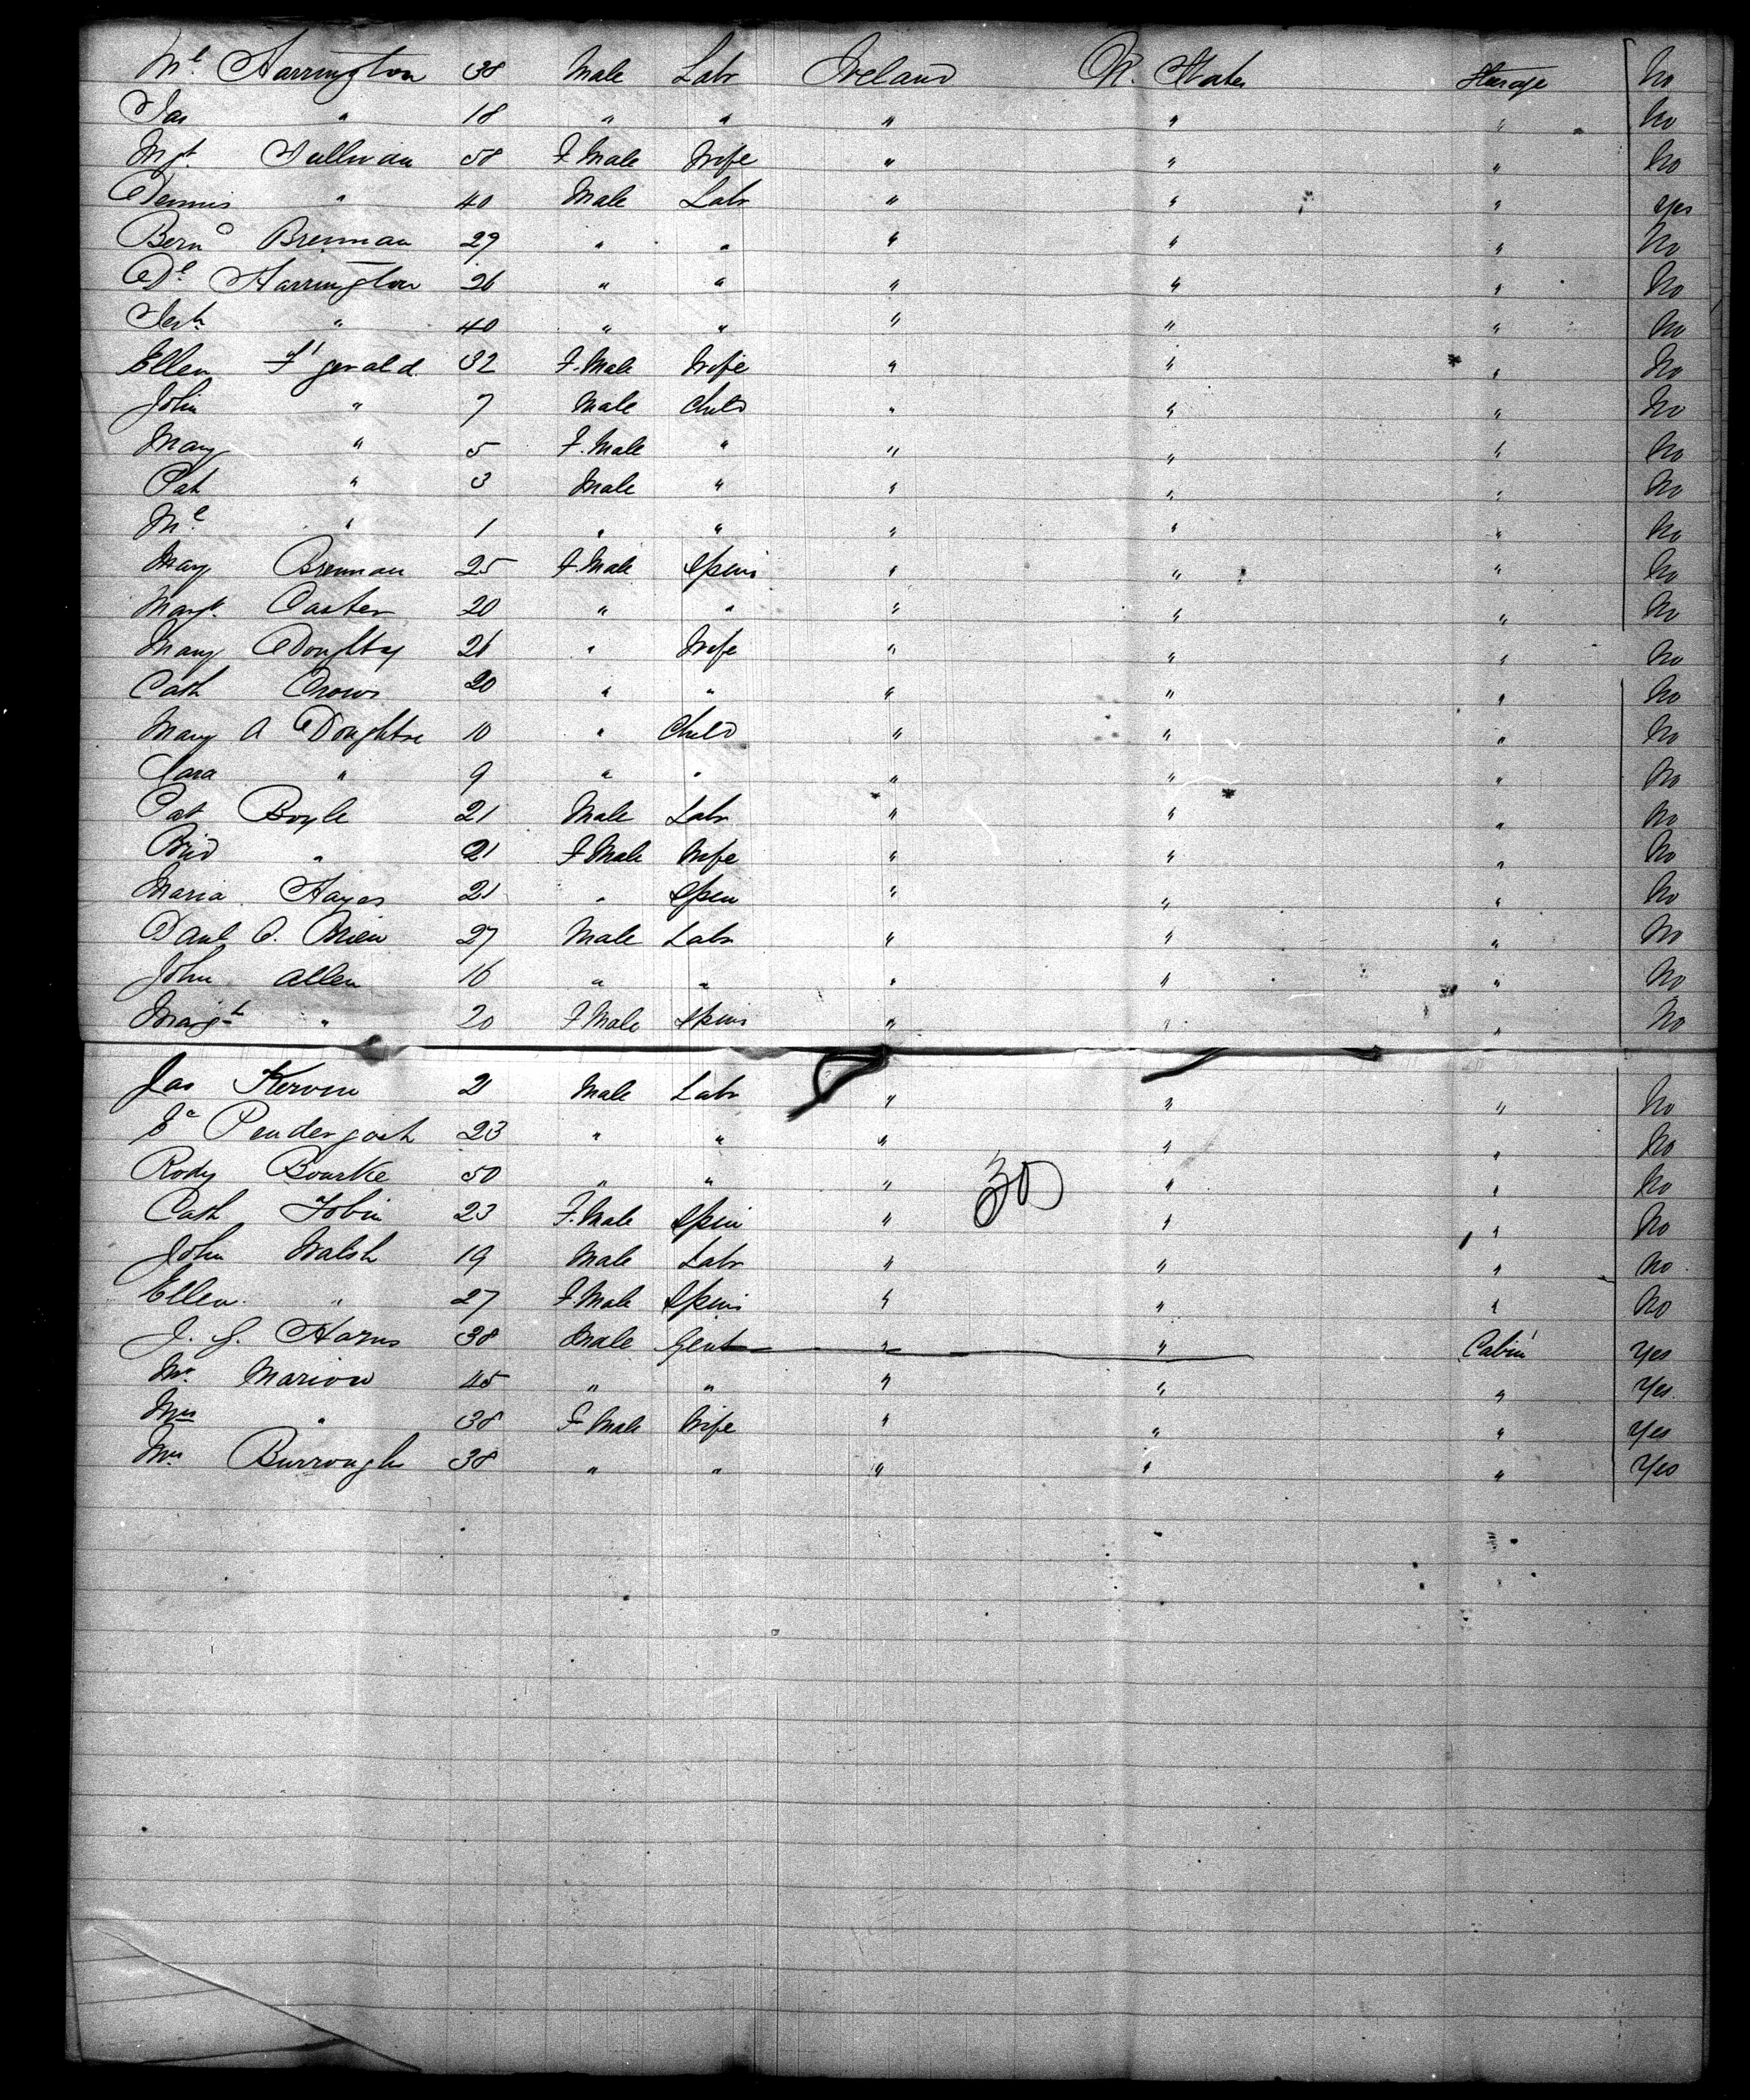 Ml Harrington 38 Male Labr Ireland U. States Steerage No
Jas " 18 " " " " " No
Mgt Sullivan 58 F. Male Wife " " " No
Dennis " 40 Male Labr " " " Yes
Bernd Brennan 29 " " " " " No
Dl Harrington 26 " " " " " No
Jerh " 40 " " " " " No
Ellen Ftgerald 32 F. Male Wife " " " No
John " 7 Male Child " " " No
Mary " 5 F. Male " " " " No
Pat " 3 Male " " " " No
Ml " 1 " " " " " No
Mary Brennan 25 F. Male Spins " " " No
Margt Carter 20 " " " " " No
Mary Doughty 26 " Wife " " " No
Cath 20 " " " " " No
Mary A 10 " Child " " " No
Clara " 9 " " " " " No
Pat Boyle 21 Male Labr " " " No
Brid " 21 F. Male Wife " " " No
Maria Hayes 21 " Spin " " " No
Danl O. Brien 27 Male Labr " " " No
John Allen 16 " " " " " No
Margt " 20 F. Male Spins " " " No
Jas Kervin 21 Male Labr " " " No
Ed Pendergast 23 " " " " " No
Rody Bourke 50 " " " 30 " " No
Cath Tobin 23 F. Male Spin " " " No
John Walsh 19 Male Labr " " " No
Ellen " 27 F. Male Spins " " " No
J. G. Harris 38 Male Gent " " Cabin Yes
Mr Marion 45 " " " " " Yes
Mrs " 38 F. Male Wife " " " Yes
Mrs Burroughs 38 " " " " " Yes